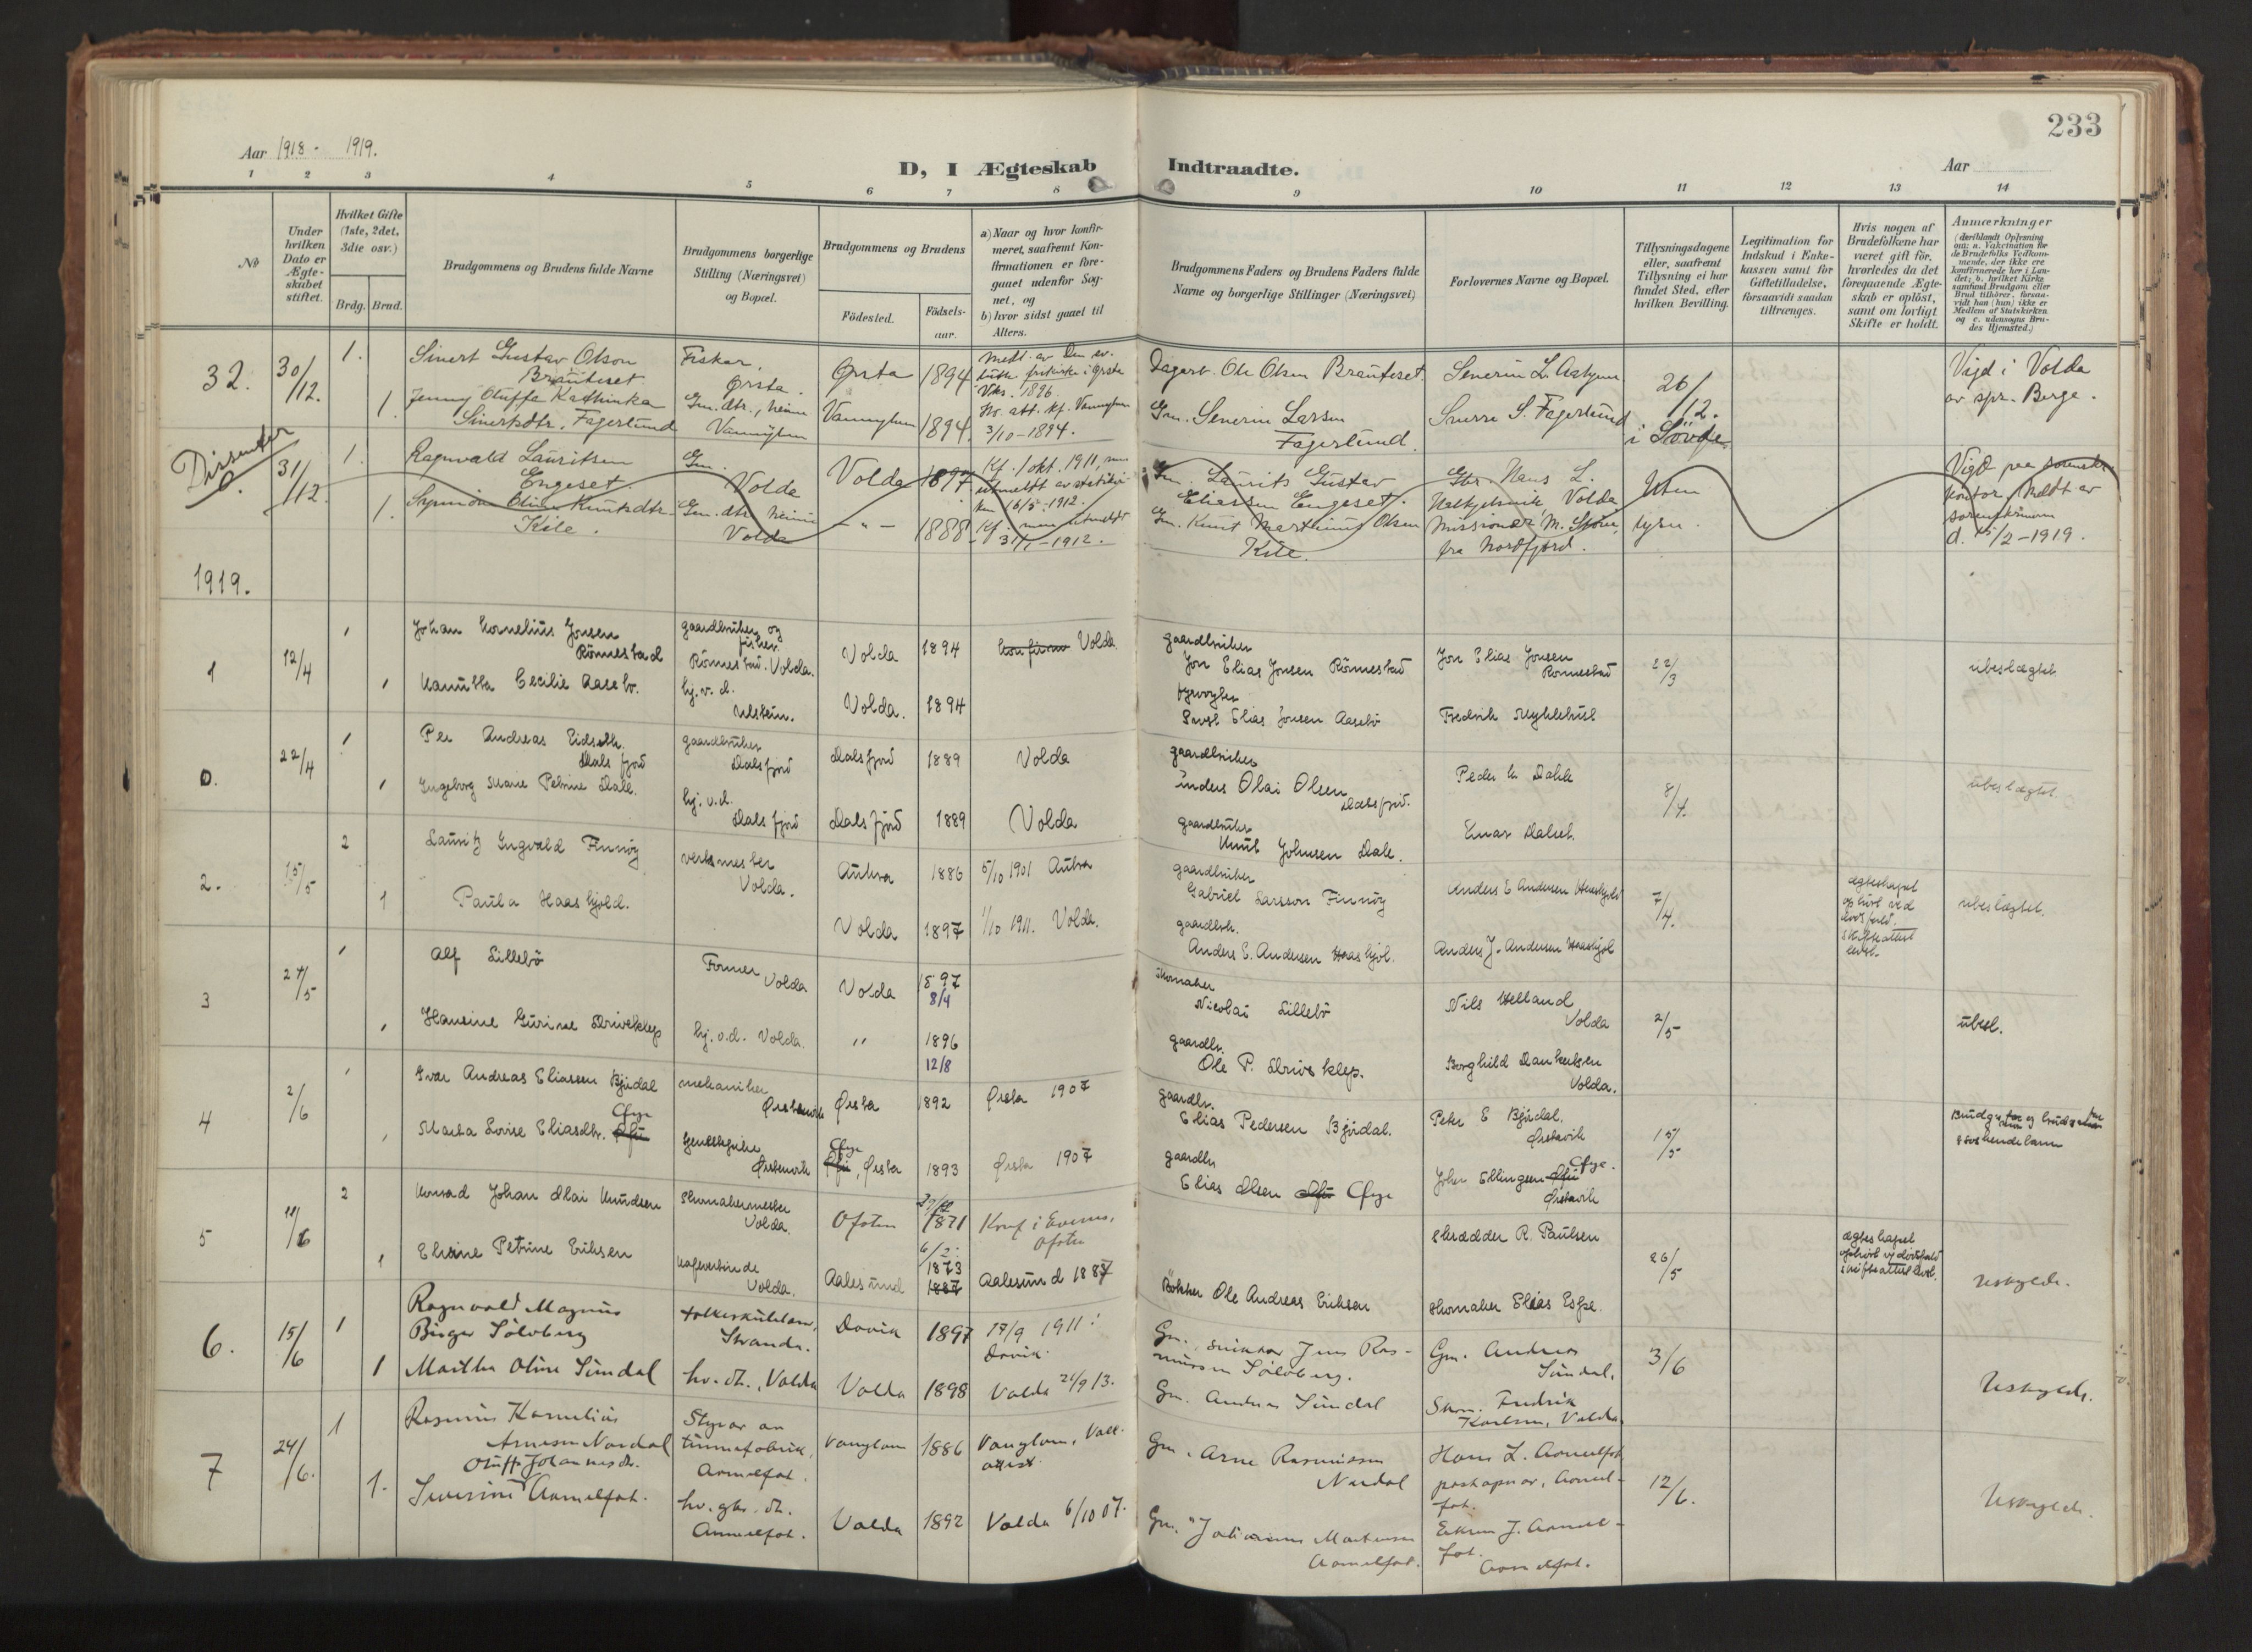 233
Aar 1918 - 1919.
D, I Ægteskab Indtraadte.
Aar
1 2 3 4 5 6 7 8 9 10 11 12 13 14
No
Under hvilken Dato er Ægteskabet stiftet.
Hvilket Gifte (1ste, 2det, 3die osv.)
Brdg. Brud.
Brudgommens og Brudens fulde Navne
Brudgommens borgerlige Stilling (Næringsvei) og Bopæl.
Brudgommens og Brudens
Födested.
Födsels-aar.
a) Naar og hvor konfirmeret, saafremt Konfirmationen er foregaaet udenfor Sognet, og
b) hvor sidst gaaet til Alters.
Brudgommens Faders og Brudens Faders fulde Navne og borgerlige Stillinger (Næringsvei)
Forlovernes Navne og Bopæl.
Tillysningsdagene eller, saafremt Tillysning ei har fundet Sted, efter hvilken Bevilling.
Legitimation for Indskud i Enkekassen samt for Giftetilladelse, forsaavidt saadan tiltrænges.
Hvis nogen af Brudefolkene har været gift för, hvorledes da det foregaaende Ægteskab er oplöst, samt om lovligt Skifte er holdt.
Anmærkninger
(deriblandt Oplysning om: a. Vakcination for de Brudefolks Vedkommende, der ikke ere konfirmerede her i Landet; b. hvilket Kirkesamfund Brudgom eller Brud tilhörer, forsaavidt han (hun) ikke er Medlem af Statskirken og c. udensogns Brudes Hjemsted.)
32. 30/12. 1.
Sivert Gustav Olson
Brauteset
Fisker,
Ørsta.
Ørsta 1894
Medl. av Den ev.
luth. frikirke i Ørsta
Vks. 1896
Dagarb. Ole Olsen Brauteset.
26/12.
i Sövde
Vigd i Volda
av spr. Berge.
1.
Jenny Oluffa Kathinka
Sivertsdtr. Fagerlund
Gm. dtr., heime
Vannylven
Vannylven 1894.
3/10 - 1894.
Gm. Severin Larsen
Fagerlund.
Snerre S. Fagerlund
Dissenter
0.
31/12. 1.
Ragnvald Lauritsen
Engeset.
Gm.
Volda
Volda 1897
Kf. 1 okt. 1911, men
utmeldt av statskir-
ken 16/5 - 1912.
Gm. Laurits Gustav
Eliassen Engeset.
Gbr. Hans L.
Helkjelsvik, Volda
Uten
lysn.
Vigd paa sorenskr.
kontor, Meldt av
sorenskriveren
d. 15/2 - 1919.
1.
Synnöve Oline Knutsdtr.
Kile.
Gm. dtr. heime
Volda
- " - 1888
Kf., men utmeldt
31/1 - 1912.
Gm. Knut Marthinus Olsen
Kile.
Missionær M. Störe,
fra Nordfjord.
1919.
1 12/4
Johan Kornelius Jonsen
Rönnestad
gaardbruker og
fisker
Rönnestad. Volda.
Volda 1894
konfirm Volda.
gaardbruker
Jon Elias Jonsen Rönnestad
Jon Elias Jonsen
Rönnestad
22/3
ubeslægtet
Cecilie Aasebö.
hj.v.d.
Ulstein.
Volda. 1894
Elias Jonsen Aasebö
Fredrik Myklebust
0. 22/4
Per Andreas Eidseth
Dalsfjord
gaardbruker
Dalsfjord
Dalsfjord 1889
Volda
gaardbruker
Anders Olai Olsen
Dalsfjord.
Peder K Dahle
8/4.
ubeslægtet.
Ingeborg Marie Petrine Dale.
hj. v.d.
Dalsfjord
Dalsfjord 1889
Volda
gaardbruker
Knut Johnsen Dale.
Einar Dalset.
2. 15/5 2
Lauritz Ingvald Finnöy
verksmester
Volda.
Aukra 1886
5/10 1901 Aukra
gaardbruker
Gabriel Larsson Finnöy
Anders E Andersen Haaskjold
7/4.
ægteskapet
ophört ved
dödsfald.
skifteattest
levert.
ubeslægtet.
1
Paula Haaskjold.
Volda 1897
1/10 1911. Volda.
gaardbr.
Anders E. Andersen Haaskjol.
Anders J. Andersen Haaskjol
3 27/5
Alf Lillebö
Former
Volda
Volda
1897
8/4
skomaker
Nicolai Lillebö
Nils Helland
Volda
2/5
ubesl.
Hansine Gurine Drivsklep
hj.v.d. Volda.
"
1896
12/8
gaardbr.
Ole P. Drivsklep.
Borghild Dankertsen
Volda.
4 2/6
Ivar Andreas Eliassen Bjørdal
mekaniker
Ørstenvik
Ørsta 1892
Ørsta 1907
gaardbr.
Elias Pedersen Bjørdal.
Peter E Bjørdal,
Ørstavik
15/5
söskendebarn
Marta Lovise Eliasdtr.
Ørstenvik
Ørsta 1893
Ørsta 1907
gaardbr
Elias Olsen
Johan Ellingsen
Ørstavik
5 11/6 2
Konrad Johan Olai Knudsen
skomakermester
Volda.
Ofoten
1871
Konf i Evenes,
Ofoten
skrædder R. Paulsen
26/5
ægteskapet
ophört v/ dödsfald
skifteattest levr.
Uskyldt.
1
Elisine Petrine Eriksen
kafevertinde
Volda.
Aalesund
6/2:
1873
1887
Aalesund 1887
Bökker Ole Andreas Eriksen
skomaker Elias Espe.
6. 15/6 1
Ragnvald Magnus
Birger Sölvberg
folkeskulelær.
Stranda.
Davik 1897
17/9 1911:
Davik.
Gm., snikkar Jens Ras-
mussen Sölvberg.
Gm. Andreas
Sundal.
3/6
Uskyldt.
1
Martha Oline Sundal
hv. dt., Volda
Volda 1898
Volda 21/9 13.
Gm. Andreas Sundal
Skom. Fredrik
Karlsen, Volda.
7 24/6. 1
Rasmus Kornelius
Arnesen Nordal
Styrar av
tunnefabrik,
Aarnelfot.
Vanylven 1886
Vanylven, Vakc.
attest.
Gm. Arne Rasmussen
Nordal
Hans L. Aarnelfot
postopnar, Aarnel-
fot.
12/6.
Uskyldt.
1.
Oluff Johannesdt.
Severine Aarnelfot.
hv. gbr. dt.
Aarnelfot.
Volda 1892
Volda 6/10 07.
Gm. Johannes Martinsen
Aarnelfot.
J. Aarnel-
fot.
Aarnelfot.